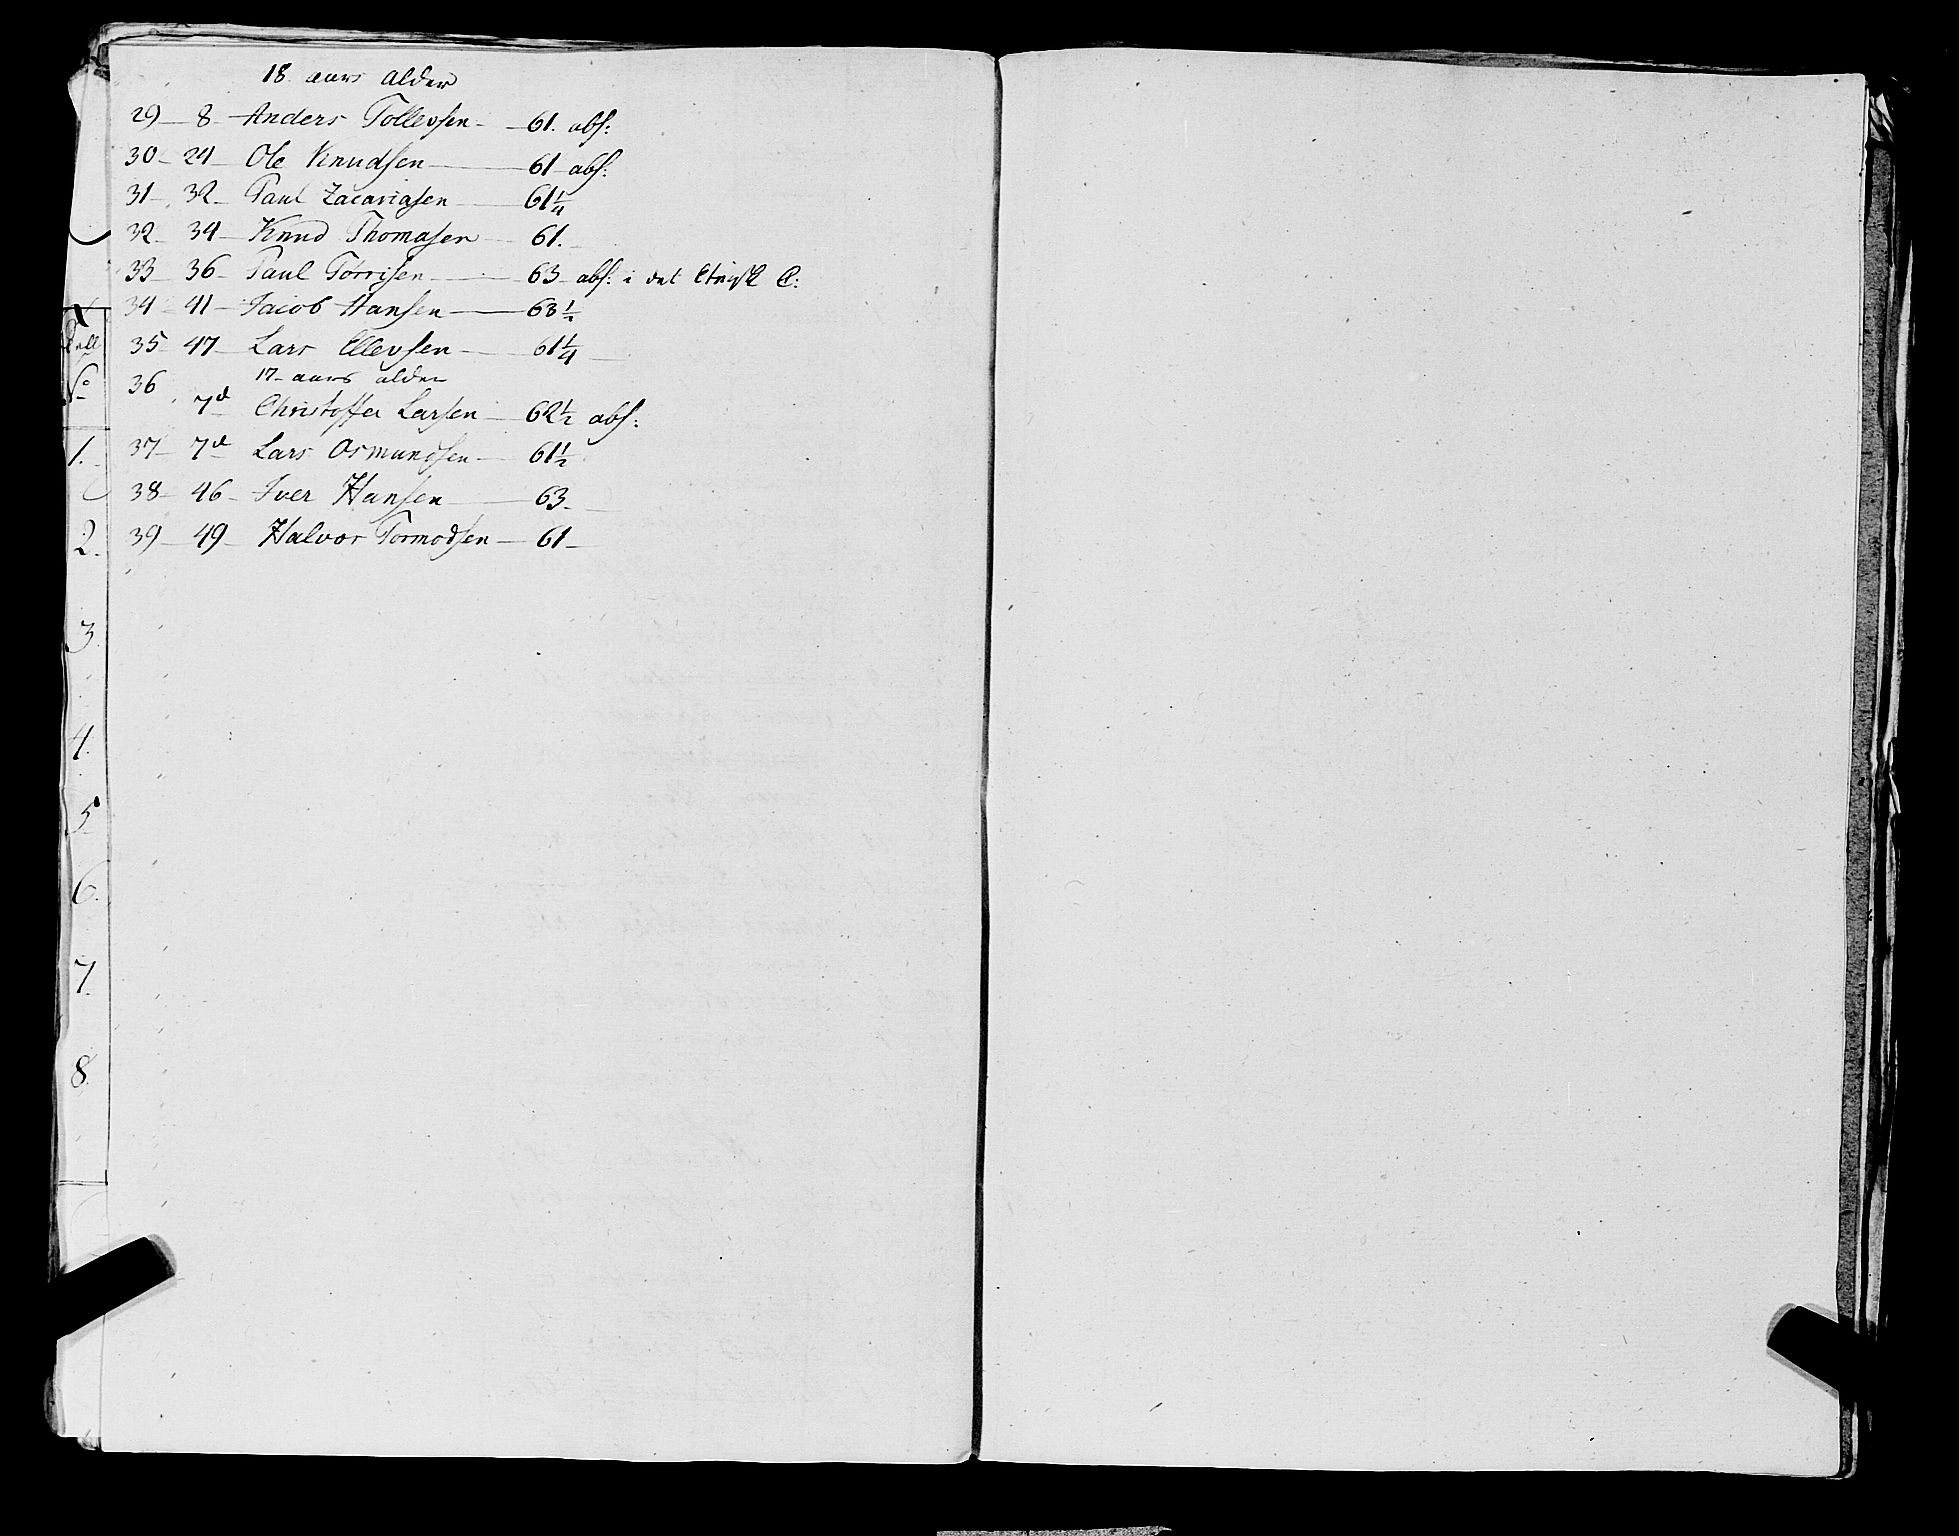 18 aars Alder
29 - 8 - Anders Tollevsen - 61. abs:
30 - 24 - Ole Knudsen - 61 - abs:
31 - 32 - Paul Zacariasen - 61 1/4
32 - 34 - Knud Thomasen - 61.
33 - 36 - Paul Törrisen - 63 - abs: i det C:
34 - 41 - Jacob Hansen - 63 1/2
35 - 47 - Lars Ellevsen - 61 1/4
36 17 - aars alder
7d Christoffer Larsen - 62 1/2 abs:
37 - 7d Lars Osmundsen - 61 1/2
38 - 46 - Iver Hansen - 63 -
39 - 49 - Halvor Tormodsen - 61 -
1.
2.
3.
4.
5
6.
7.
8.